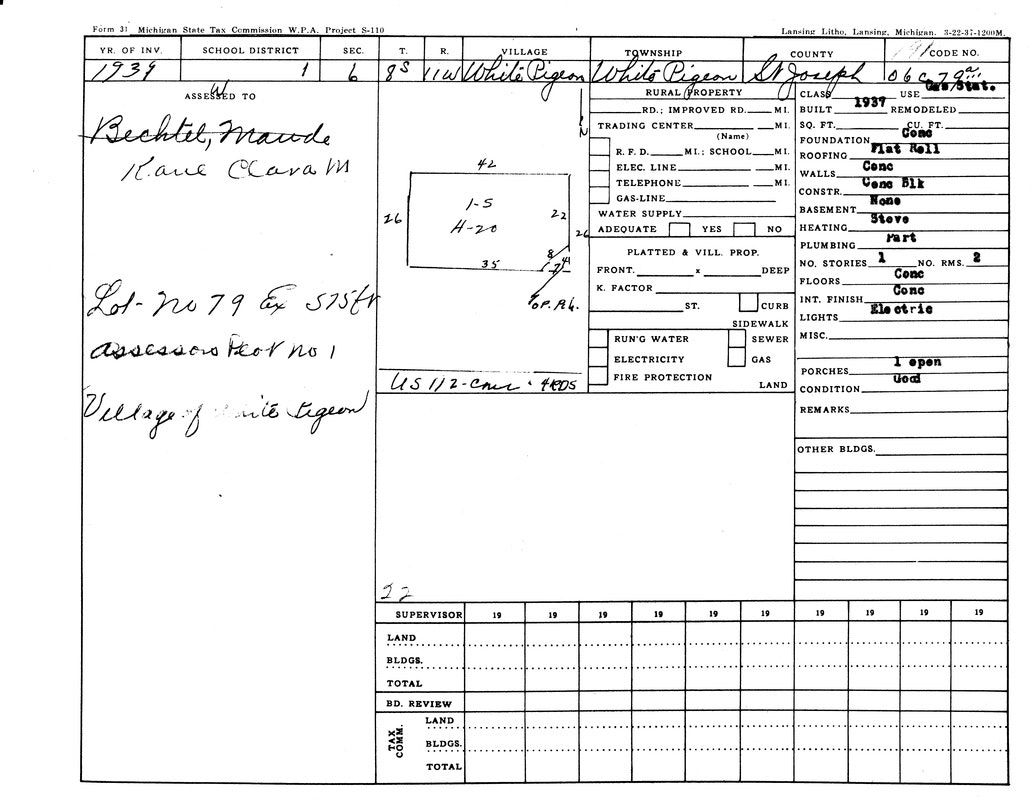 Form 31 Michigan State Tax Commission W.P.A. Project S-110
Lansing Litho, Lansing, Michigan. 3-22-37-1200M.
YR. OF INV. SCHOOL DISTRICT SEC. T. R. VILLAGE TOWNSHIP COUNTY CODE NO.
1939 1 6 8S 11W White Pigeon White Pigeon St Joseph 06 C 79
ASSESSED TO
Bechtel, Maude
Kane Clara M
Lot- No 79 Ex S75ft
Assessors Plat No 1
Village of White Pigeon
N
42
26
1-5
H-20
22
26
8
35
US 112-Cor. 4 RDS
22
RURAL PROPERTY
RD.; IMPROVED RD. MI.
TRADING CENTER MI.
(Name)
R. F. D. MI.; SCHOOL MI.
ELEC. LINE MI.
TELEPHONE MI.
GAS-LINE
WATER SUPPLY
ADEQUATE YES NO
PLATTED & VILL. PROP.
FRONT. x DEEP
K. FACTOR
ST. CURB
SIDEWALK
RUN'G WATER SEWER
ELECTRICITY GAS
FIRE PROTECTION
LAND
CLASS USE Gas Stat.
BUILT 1937 REMODELED
SQ. FT. CU. FT.
FOUNDATION Conc
ROOFING Flat Roll
WALLS Conc
CONSTR. Conc Blk
BASEMENT None
HEATING Stove
PLUMBING Part
NO. STORIES 1 NO. RMS. 2
FLOORS Conc
INT. FINISH Conc
LIGHTS Electric
MISC.
PORCHES 1 open
CONDITION Good
REMARKS
OTHER BLDGS.
SUPERVISOR 19 19 19 19 19 19 19 19 19 19
LAND
BLDGS.
TOTAL
BD. REVIEW
TAX COMM.
LAND
BLDGS.
TOTAL